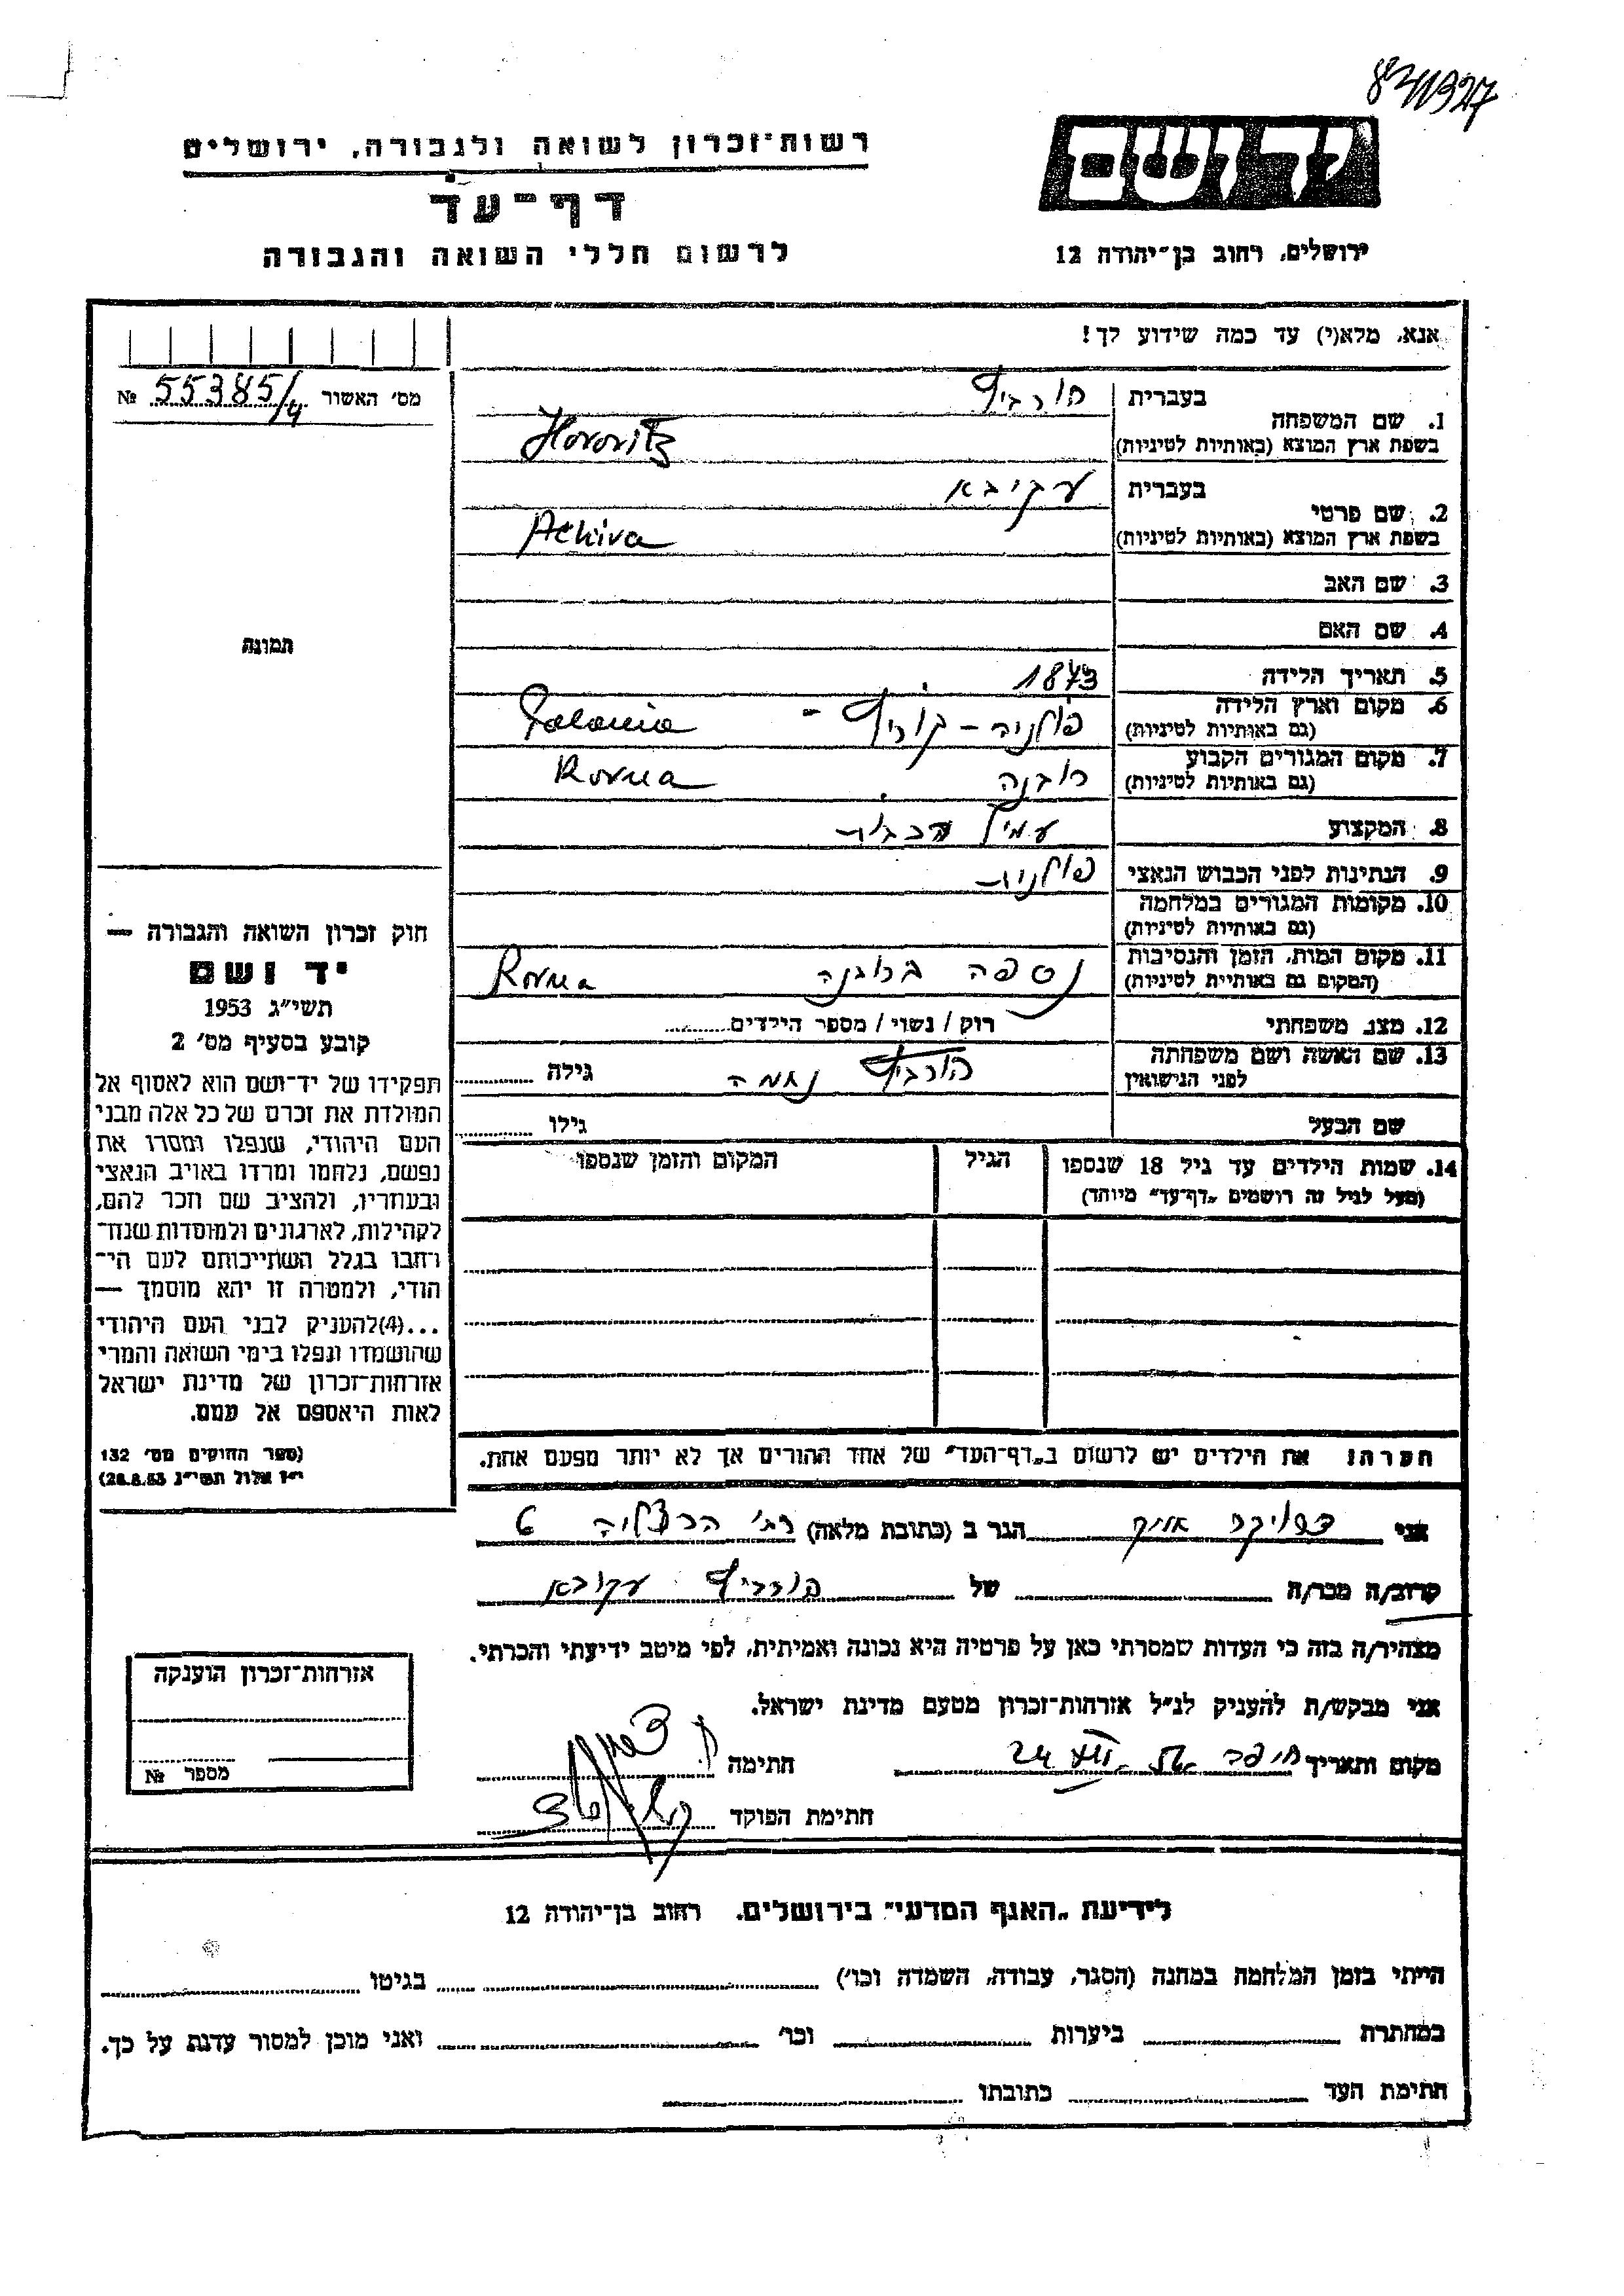 8211327
רשות־זכרון לשואה ולגבורה, ירושלים
יד ושם
דף־עד
לרשום חללי השואה והגבורה
ירושלים, רחוב בן־יהודה 12
אנא, מלא(י) עד כמה שידוע לך!
מס׳ האשור 55385/4 №
בעברית
1. שם המשפחה הורביץ
בשפת ארץ המוצא (באותיות לטיניות) Horovitz
בעברית עקיבא
2. שם פרטי
בשפת ארץ המוצא (באותיות לטיניות) Achiva
3. שם האב
4. שם האם
תמונה
5. תאריך הלידה 1873
6. מקום וארץ הלידה פולניה - קוריץ - Polania
(גם באותיות לטיניות)
7. מקום המגורים הקבוע רובנה Rovna
(גם באותיות לטיניות)
8. המקצוע
9. הנתינות לפני הכבוש הנאצי פולנית
10. מקומות המגורים במלחמה
(גם באותיות לטיניות)
11. מקום המות, הזמן והנסיבות נספה ברובנה Rovna
(המקום גם באותיות לטיניות)
12. מצב משפחתי רוק / נשוי / מספר הילדים
13. שם האשה ושם משפחתה הורביץ נחמה גילה
לפני הנישואין
שם הבעל גילו
14. שמות הילדים עד גיל 18 שנספו הגיל המקום והזמן שנספו
(מעל לגיל זה רושמים „דף־עד״ מיוחד)
חוק זכרון השואה והגבורה —
יד ושם
תשי״ג 1953
קובע בסעיף מס׳ 2
תפקידו של יד־ושם הוא לאסוף אל
המולדת את זכרם של כל אלה מבני
העם היהודי, שנפלו ומסרו את
נפשם, נלחמו ומרדו באויב הנאצי
ובעוזריו, ולהציב שם וזכר להם,
לקהילות, לארגונים ולמוסדות שנח־
רחבו בגלל השתייכותם לעם הי־
הודי, ולמטרה זו יהא מוסמך —
...(4)להעניק לבני העם היהודי
שהושמדו ונפלו בימי השואה והמרי
אזרחות־זכרון של מדינת ישראל
לאות היאספם אל עמם.
(ספר החוקים מס׳ 132
י״ז אלול תשי״ג 28.8.53)
הערה: את הילדים יש לרשום ב„דף־העד״ של אחד ההורים אך לא יותר מפעם אחת.
אני הגר ב (כתובת מלאה) רח׳ הרצליה 6
קרוב/ה מכר/ה של הורביץ עקיבא
מצהיר/ה בזה כי העדות שמסרתי כאן על פרטיה היא נכונה ואמיתית, לפי מיטב ידיעתי והכרתי.
אני מבקש/ת להעניק לנ״ל אזרחות־זכרון מטעם מדינת ישראל.
מקום ותאריך חיפה חתימה
חתימת הפוקד
אזרחות־זכרון הוענקה
מספר №
לידיעת „האגף המדעי״ בירושלים. רחוב בן־יהודה 12
הייתי בזמן המלחמה במחנה (הסגר, עבודה, השמדה וכו׳) בגיטו
במחתרת ביערות וכו׳ ואני מוכן למסור עדות על כך.
חתימת העד כתובתו